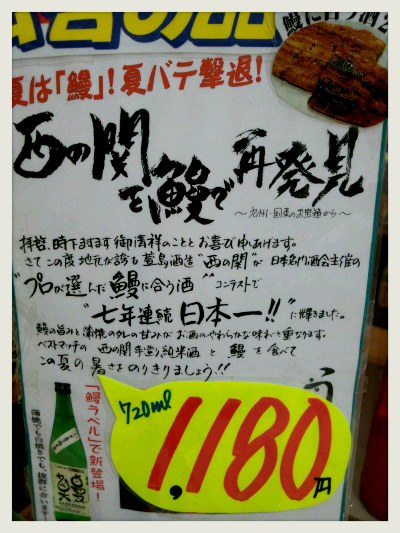 鰻に合う酒
夏は「鰻」!夏バテ撃退!
西の関
を鰻で
再発見
～九州・国東のお宝酒から～
拝啓、時下ますます御清祥のこととお喜び申しあげます。
さてこの度地元が誇る萱島酒造“西の関”が日本名門酒会主催の
“プロが選んだ鰻に合う酒”コンテストで
“七年連続日本一!!”に輝きました。
鰻の旨みと蒲焼のタレの甘みがお酒のやわらかな味わいと重なります。
ベストマッチの西の関手造り純米酒と鰻を食べて
この夏の暑さをのりきりましょう!!
「鰻ラベル」で新登場!
蒲焼でも白焼きでも、抜群に合います!
720ml
1,180円